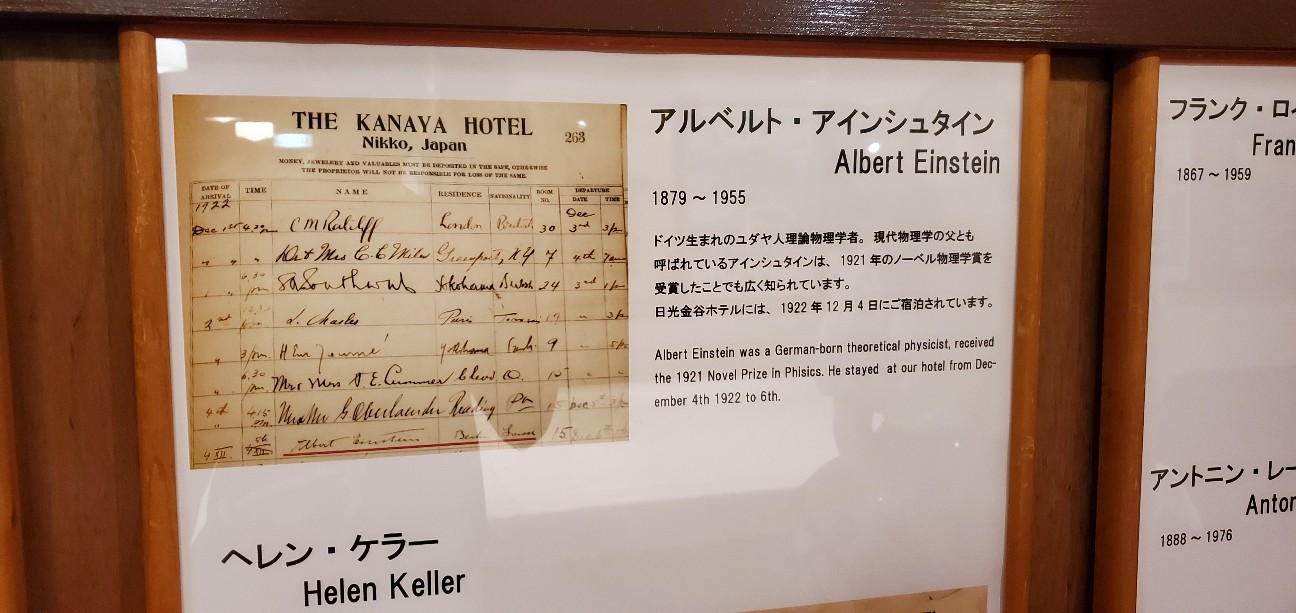 THE KANAYA HOTEL
Nikko, Japan
263
MONEY, JEWELERY AND VALUABLES MUST BE DEPOSITED IN THE SAFE, OTHERWISE
THE PROPRIETOR WILL NOT BE RESPONSIBLE FOR LOSS OF THE SAME.
DATE OF ARRIVAL TIME NAME RESIDENCE NATIONALITY ROOM NO. DEPARTURE DATE TIME
1922
Dec
London British 30 3rd
Mrs 7 4th
Yokohama British 24 3rd
2nd L. Charles Paris
Yokohama 9
6,30 Mrs
4th 4.15 Reading Pa
4 XII Albert Einstein 15
アルベルト・アインシュタイン
Albert Einstein
1879 ~ 1955
ドイツ生まれのユダヤ人理論物理学者。現代物理学の父とも
呼ばれているアインシュタインは、1921 年のノーベル物理学賞を
受賞したことでも広く知られています。
日光金谷ホテルには、1922 年 12 月 4 日にご宿泊されています。
Albert Einstein was a German-born theoretical physicist, received
the 1921 Novel Prize in Phisics. He stayed at our hotel from Dec-
ember 4th 1922 to 6th.
ヘレン・ケラー
Helen Keller
フランク・ロイ
Fran
1867 ~ 1959
アントニン・レー
Anton
1888 ~ 1976